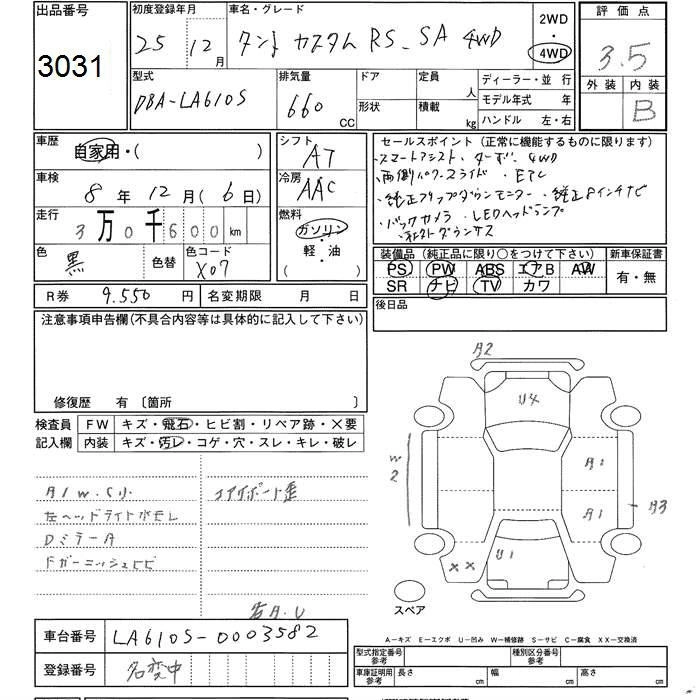 出品番号
3031
初度登録年月
25 12月
車名・グレード
タント カスタム RS_SA 4WD
2WD
・
4WD
評価点
3.5
外装 内装
B
型式
DBA-LA610S
排気量
660 CC
ドア
形状
定員 人
積載 kg
ディーラー・並行
モデル年式 年
ハンドル 左・右
車歴
自家用・( )
車検
8年 12月(6日)
走行
3万0千600km
色
黒
色替
色コード
X07
シフト
AT
冷房
AAC
燃料
ガソリン
・
軽・油
( )
セールスポイント(正常に機能するものに限ります)
・スマートアシスト、ターボ、4WD
・両側パワースライド・ETC
・純正フリップダウンモニター・純正8インチナビ
・バックカメラ・LEDヘッドランプ
装備品(純正品に限り○をつけて下さい)
PS PW ABS エアB AW
SR ナビ TV カワ
新車保証書
有・無
後日品
R券 9.550円
名変期限 月 日
注意事項申告欄(不具合内容等は具体的に記入して下さい)
修復歴 有〔箇所 〕
検査員
記入欄
FW キズ・飛石・ヒビ割・リペア跡・×要
内装 キズ・汚レ・コゲ・穴・スレ・キレ・破レ
A/W.Cリ
左ヘッドライトガモレ
DミラーA
Fガーニッシュヒビ
コアサポート歪
右A.U
A2
U4
W2
A1
A1
A3
U1
××
スペア
車台番号
LA610S-0003582
登録番号
名変中
A-キズ E-エクボ U-凹み W-補修跡 S-サビ C-腐食 XX-交換済
型式指定番号
参考
種別区分番号
参考
車庫証明用
参考
長さ cm
幅 cm
高さ cm